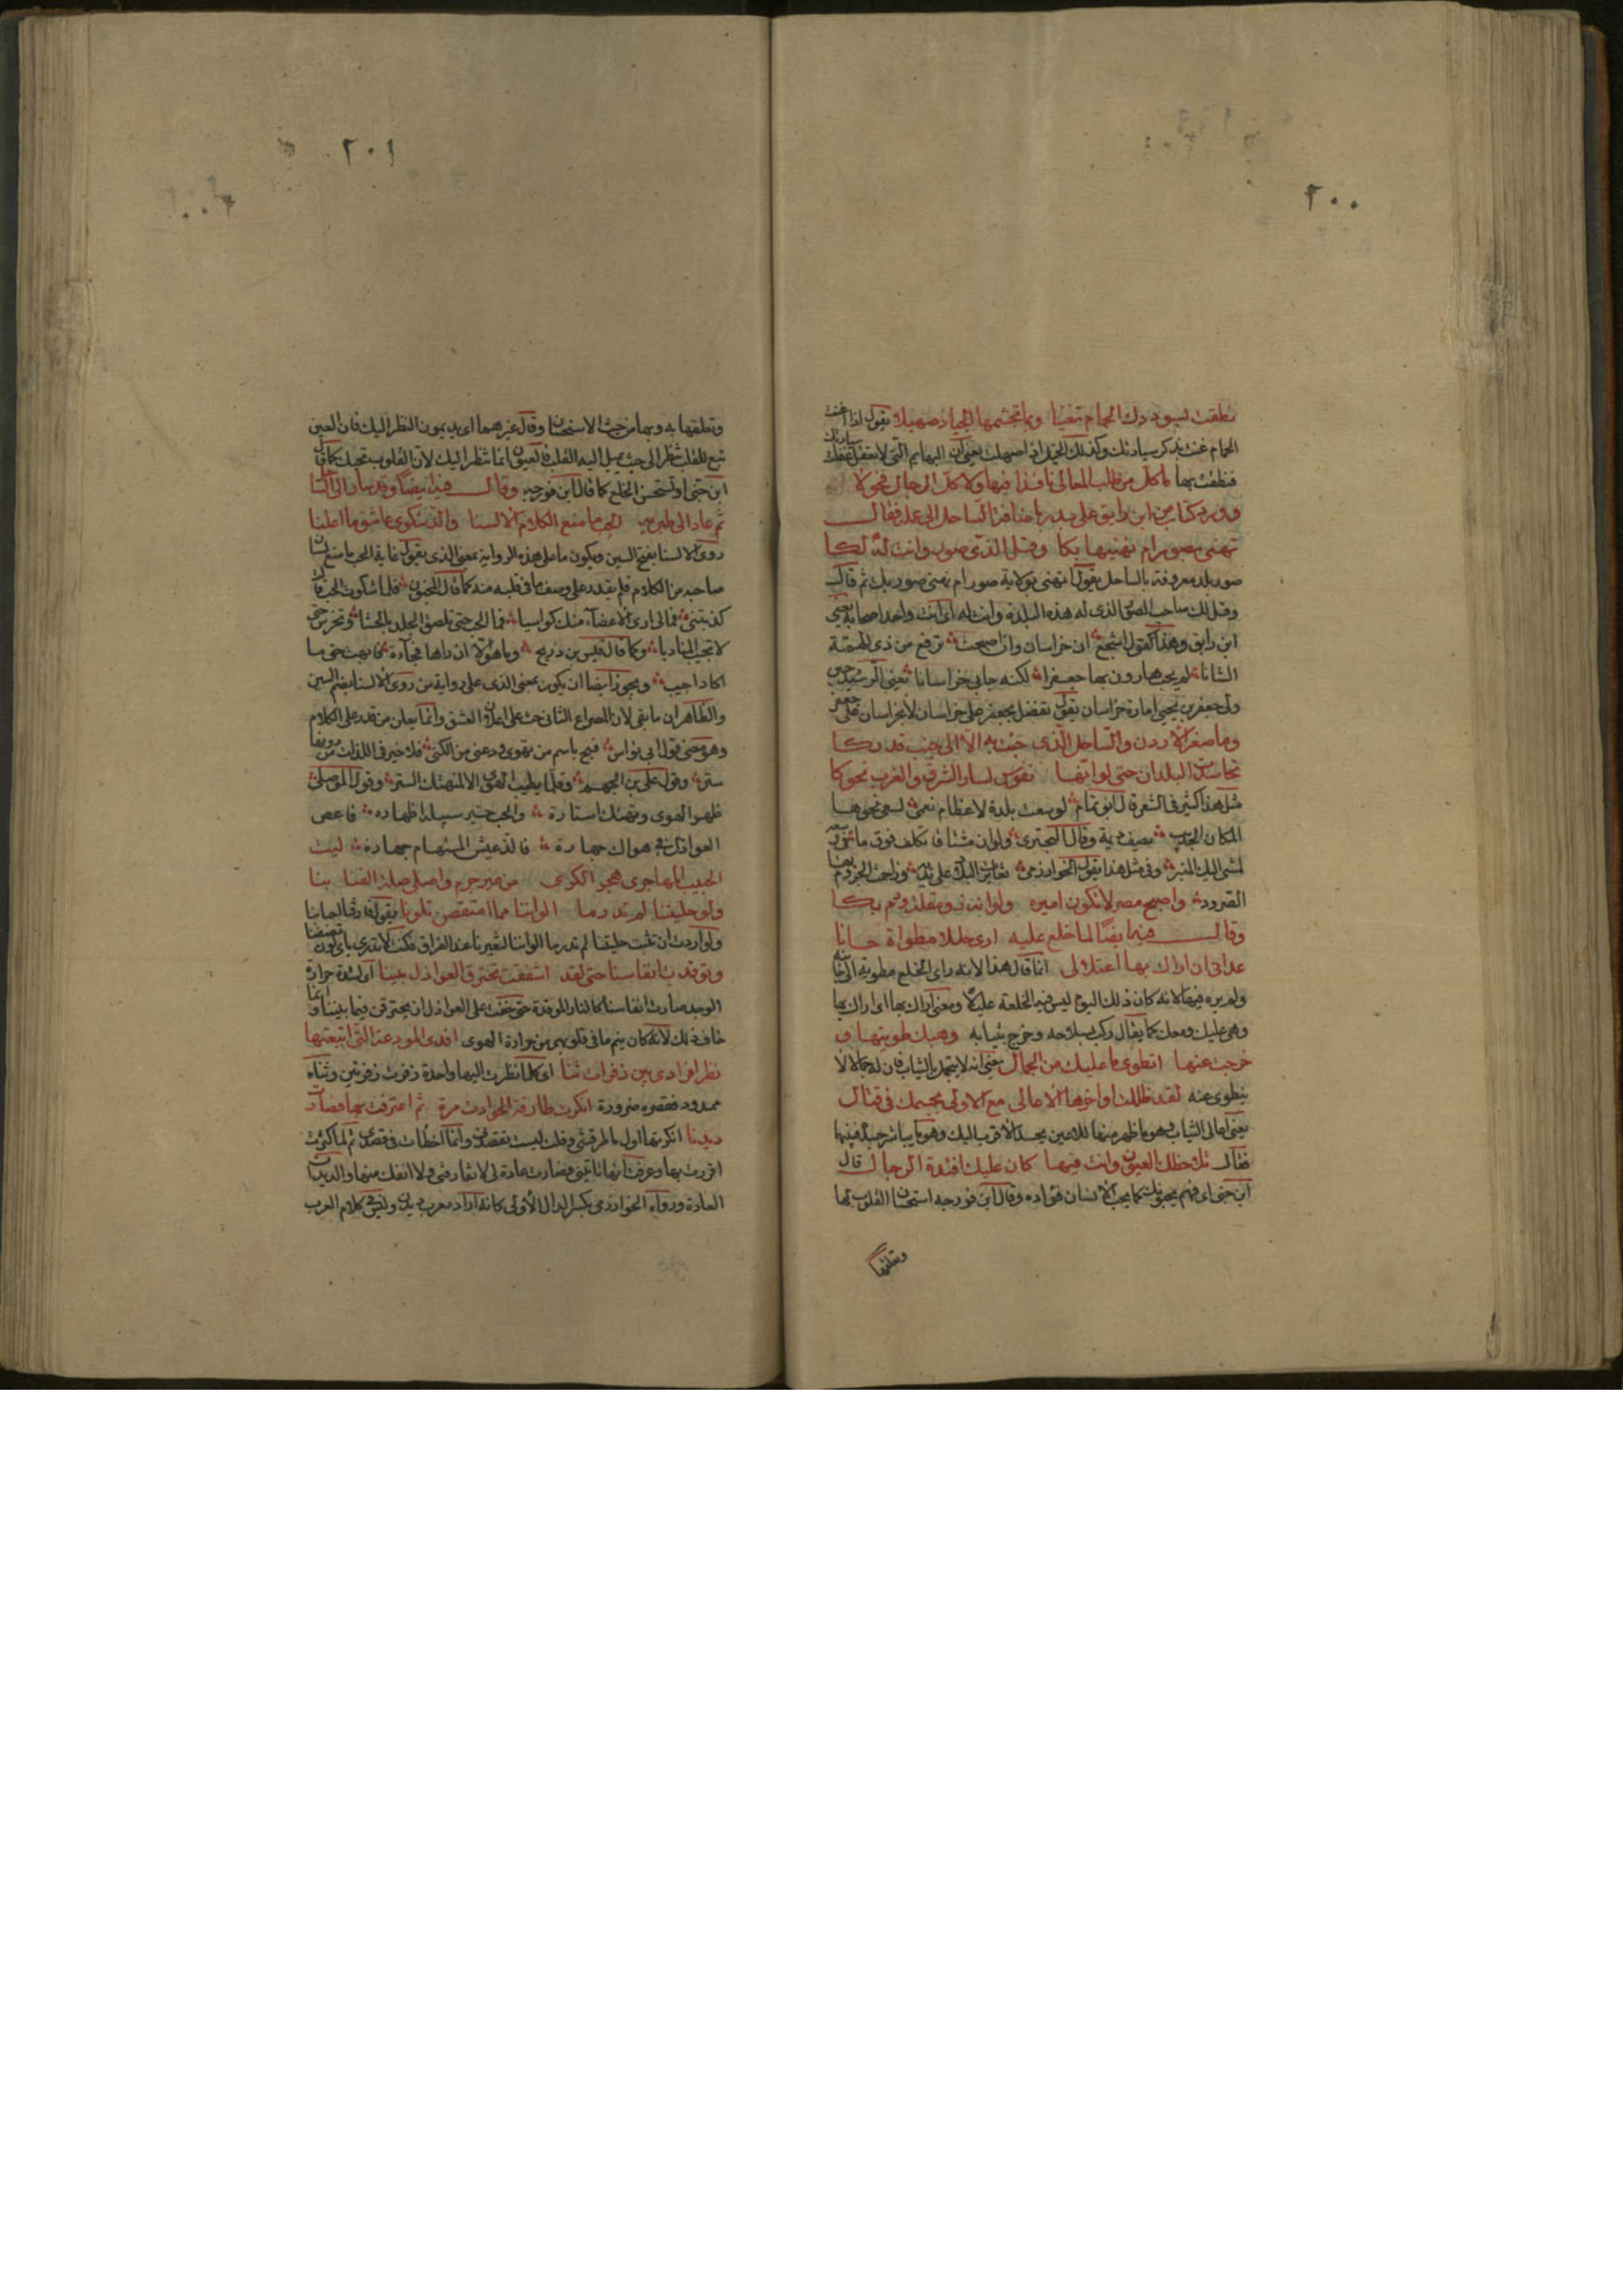 ٢٠٠
نطقت بسوددك الحمام تغنيا وبما تجشمها الجياد صهيلا يقول اذا غنت
الحمام غنت بذكر سيادتك وكذلك الخيل اذا صهلت يعني ان البهايم التي لا تعقل عقلت سيادتك
فنطقت بها ما كل من طلب المعالي نافذا فيها ولا كل الرجال فحولا
وورد كتاب من ابن رايق على بدر باضافة الساحل الى عمله فقال
تهنى بصور ام نهنيها بكا وقل الذي صور وانت له لكا
صور بلد معروفة بالساحل يقول اتهنى بولاية صور ام نهنى صور بك ثم قال
وقل لك صاحب الصور الذي له هذه البلدة وانت له اي انت واحد اصحابه يعني
ابن رايق وهذا كقول اشجع ان خراسان وان اصبحت ترفع من ذي الهمة
الشانا لم يحب هارون بها جعفرا لكنه حابى خراسانا يعني الرشيد حين
ولى جعفر بن يحيى امارة خراسان يقول تفضل بجعفر على خراسان لا بخراسان على جعفر
وما صغر الاردن والساحل الذي حبيت به الا الى جنب قدركا
تحاسدت البلدان حتى لو انها نفوس لسار الشرق والغرب نحوكا
مثل هذا كثير في الشعر قال ابو تمام لو سعت بلدة لاعظام نعمى لسعى نحوها
المكان الجديب يصف ديمة وقال البحتري ولو ان مشتاقا تكلف فوق ما في وسعه
لمشى اليك المنبر وفي مثل هذا يقول الخوارزمي تغايرت البلاد على يديه وزاحمت الجروم بها
الصرود واصبح مصر لا تكون اميره ولو انه ذو مقلة وفم بكا
وقال فيه ايضا لما خلع عليه ارى حللا مطواة حسانا
عداني ان اراك بها اعتلالي انما قال هذا لانه راى الخلع مطوية الى جانبه
ولم يره فيها لانه كان ذلك اليوم لبس فيه الخلعة عليلا ومعنى اراك بها اي اراك بها
وهي عليك ومعك كما يقال ركب بسلاحه وخرج بثيابه وهبك طويتها و
خرجت عنها اتطوي ما عليك من الجمال يعني انه لا يتجمل بالثياب فان له جمالا لا
ينطوي عنه لقد ظلت اواخرها الاعالي مع الاولى بجسمك في قتال
يعني اعالي الثياب وهو ما ظهر منها للاعين يحسد الاقرب اليك وهو ما يباشر جسده منها
فقال تلاحظك العيون وانت فيها كان عليك افئدة الرجال قال
ابن جنى اي فهم يحبونك كما يحب الانسان فؤاده وقال ابن فورجه استحسنا القلوب لها
وتعلقها
٢٠١
وتعلقها به وبها من حيث الاستحسان وقال غيرهما اي يديمون النظر اليك فان العين
تبع للقلب تنظر الى حيث يميل اليه القلب فالعيون انما تنظر اليك لان القلوب تحبك كما قال
ابن جنى او تستحسن الخلع كما قال ابن فورجه وقال فيه ايضا وقد سار الى الساحل
ثم عاد الى طبريه الحب ما منع الكلام الالسنا والذ شكوى عاشق ما اعلنا
روى الالسنا بفتح السين ويكون ما على هذه الرواية بمعنى الذي يقول غاية الحب ما منع لسان
صاحبه من الكلام فلم يقدر على وصف ما في قلبه منه كما قال المجنون فلما شكوت الحب قالت
كذبتني فما لي ارى الاعضاء منك كواسيا فما الحب حتى يلصق الجلد بالحشا وتخرس حتى
لا تجيب المناديا وكما قال قيس بن ذريح وما هو الا ان راها فجاءة فابهت حتى ما
اكاد اجيب ويجوز ايضا ان يكون بمعنى الذي على رواية من روى الالسنا بضم السين
والظاهر ان ما نفي لان المصراع الثاني حث على اعلان العشق وانما يعلن من قدر على الكلام
وهو معنى قول ابي نواس فبح باسم من تهوى ودعني من الكنى فلا خير في اللذات من دونها
ستر وقول علي بن الجهم وقلما يطيب الهوى الا لمنهتك الستر وقول الموصلي
ظهر الهوى وتهتك استاره والحب خير سبيله اظهاره فاعص
العواذل في هواك جهارة فالذ عيش المستهام جهاره ليت
الحبيب الهاجري هجر الكرى من غير جرم واصلي صلة الضنا بنا
ولو حليتنا لم تدر ما الواننا مما امتقعن تلونا يقول فارقنا احبابنا
ولو اردت ان تثبت حليتنا لم تدر ما الواننا لتغيرنا عند الفراق فكنت لا تدري باي لون تصفنا
وتوقدت انفاسنا حتى لقد اشفقت تحترق العواذل بيننا اي لشدة حرارة
الوجد صارت انفاسنا كالنار الموقدة حتى خفت على العواذل ان يحترقن فيما بيننا وانما
خاف ذلك لانه كان ينم ما في قلوبهم من حرارة الهوى افدى المودعة التي اتبعتها
نظرا فرادى بين زفرات ثنا اي كلما نظرت اليها واحدة زفرت زفرتين وثناء
ممدود فقصره ضرورة انكرت طارقة الحوادث مرة ثم اعترفت بها فصارت
ديدنا انكرتها اول ما طرقتني وقلت ليست تقصدني وانما اخطات في قصدي ثم لما كثرت
اقررت بها وعرفت انها تاتيني فصارت عادة لي لا تفارقني ولا انفك منها والديدن
العادة ورواه الخوارزمي بكسر الدال الاولى كانه اراد معرب ديدن وليس في كلام العرب